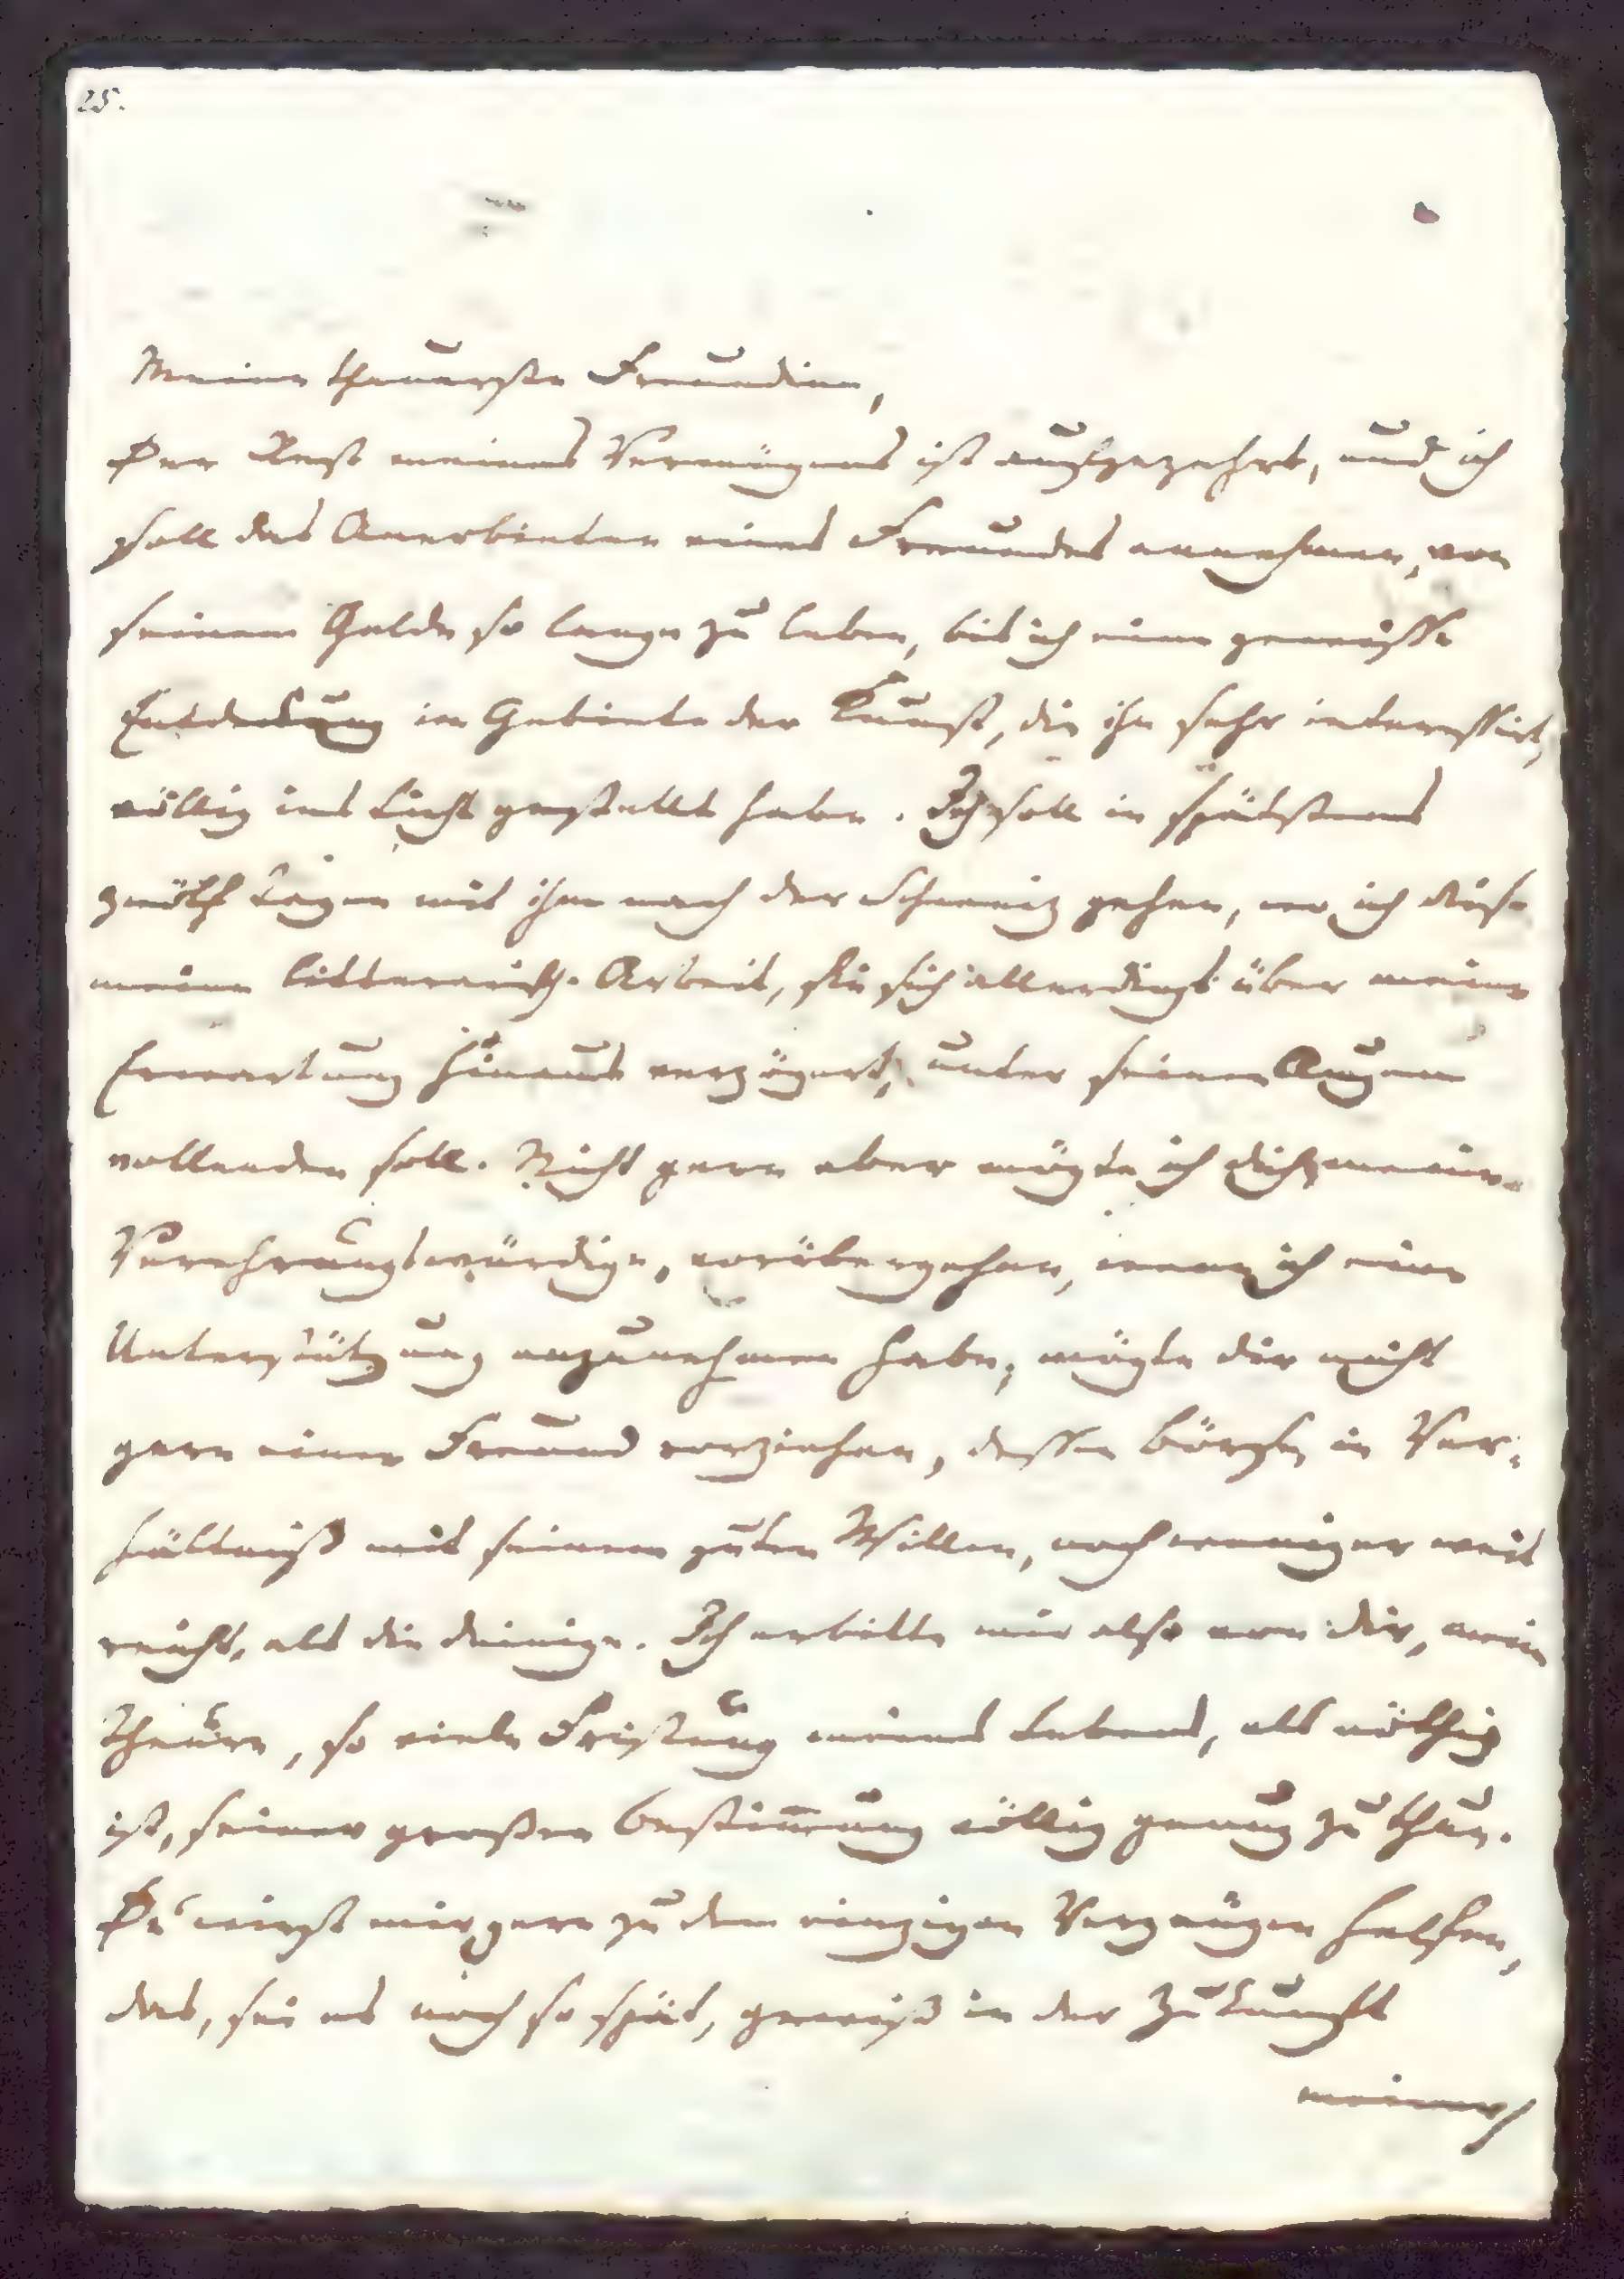 25.
Meine theuerste Freundinn,
Der Rest meines Vermögens ist aufgezehrt, und ich
soll das Anerbieten eines Freundes annehmen, von
seinem Gelde so lange zu leben, bis ich eine gewisse
Entdeckung im Gebiete der Kunst, die ihn sehr interessirt,
völlig ins Licht gestellt habe. Ich soll in spätstens
zwölf Tagen mit ihm nach der Schweiz gehen, wo ich diese
meine litterarische Arbeit, die sich allerdings über meine
Erwartung hinaus verzögert, unter seinen Augen
vollenden soll. Nicht gern aber mögte ich dich, meine
Verehrungswürdige, vorübergehen, wenn ich eine
Unterstützung anzunehmen habe; mögte dir nicht
gern einen Freund vorziehen, dessen Börse, in Ver-
hältniß mit seinem guten Willen, noch weniger weit
reicht, als die deinige. Ich erbitte mir also von dir, meine
Theure, so viele Fristung meines Lebens, als nöthig
ist, seiner großen Bestimmung völlig genug zu thun.
Du wirst mir gern zu dem einzigen Vergnügen helfen,
das, sei es noch so spät, gewiß in der Zukunft
meiner